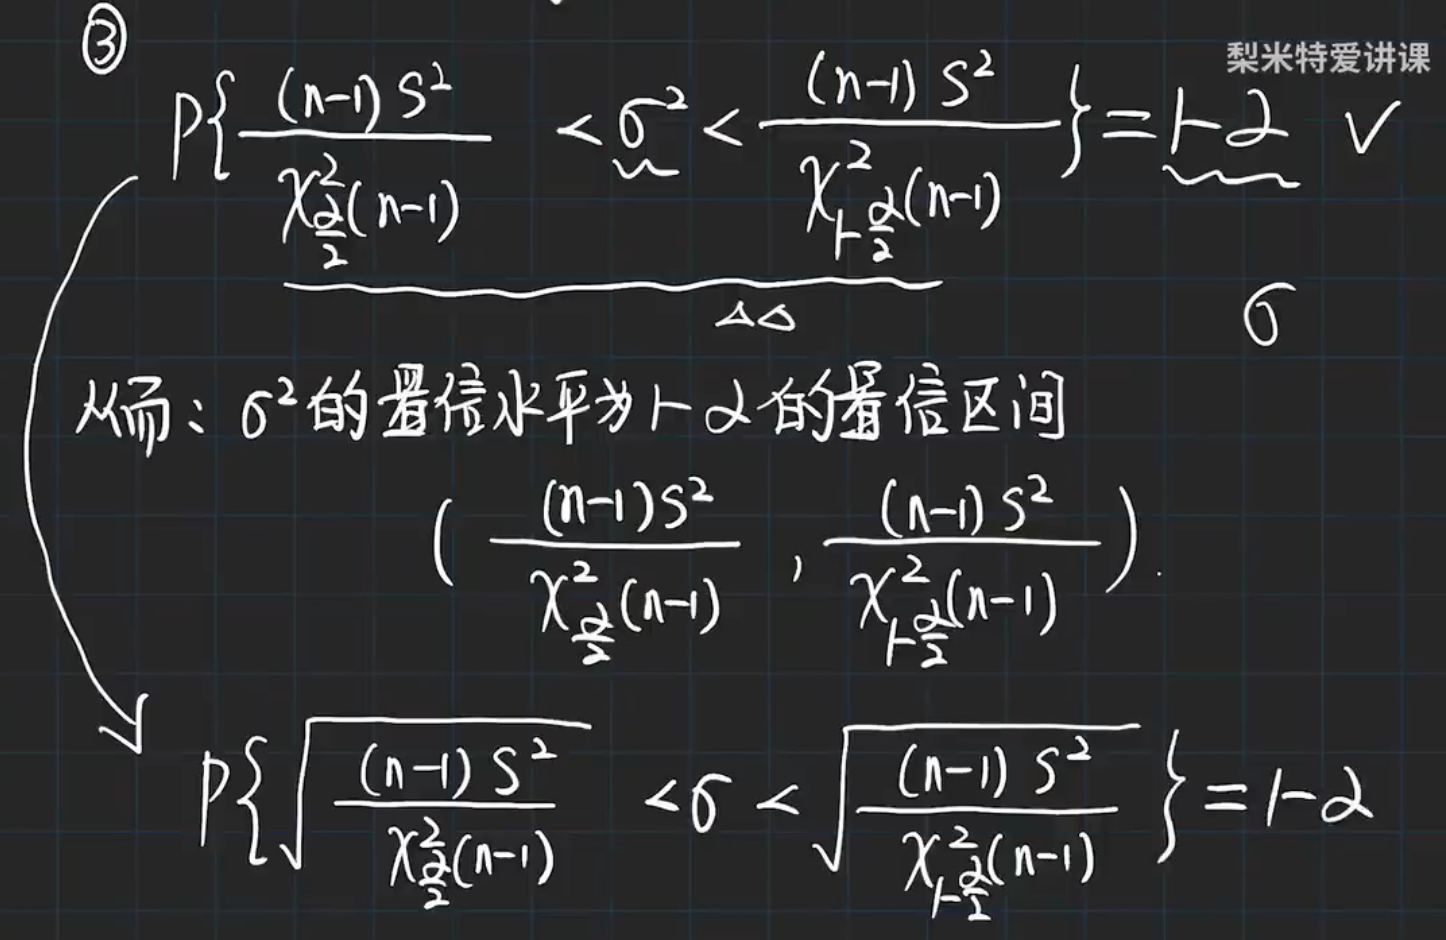 ③
梨米特爱讲课
P{ (n-1)S² / χ²_{α/2}(n-1) < σ² < (n-1)S² / χ²_{1-α/2}(n-1) } = 1-α √
△△
σ
从而：σ²的置信水平为1-α的置信区间
( (n-1)S² / χ²_{α/2}(n-1) , (n-1)S² / χ²_{1-α/2}(n-1) ).
P{ √((n-1)S² / χ²_{α/2}(n-1)) < σ < √((n-1)S² / χ²_{1-α/2}(n-1)) } = 1-α